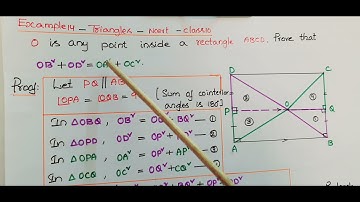 Example14 - Triangles - Ncert - class10
O is any point inside a rectangle ABCD. Prove that
OB² + OD² = OA² + OC².
Proof: Let PQ ||
[Sum of cointerior
angles is 180°]
In △OBQ, OB²
BQ² - ①
In △OPD, OD²
PD² - ②
In △OPA, OA² = OP² + AP² - ③
In △OCQ, OC² = OQ² + CQ² - ④
D
C
P
O
Q
A
B